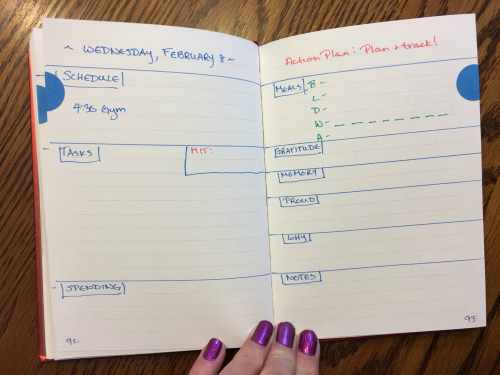 ~ WEDNESDAY, FEBRUARY 8 ~
SCHEDULE
4:30 Gym
TASKS
MIT:
SPENDING
92
Action Plan: Plan + track!
MEALS
B -
L -
D -
W - _ _ _ _ _ _ _ _
A -
GRATITUDE
MEMORY
PROUD
WHY
NOTES
93